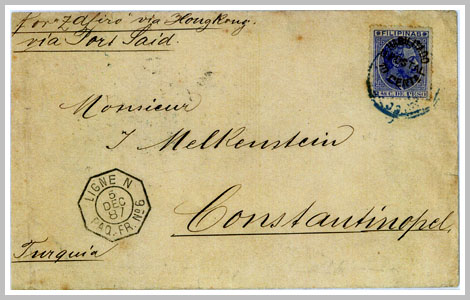 via HongKong.
via Port Said.
FILIPINAS
Monsieur
J Melkenstein
LIGNE N
5
DEC
87
PAQ. FR. No 6
Constantinopel.
Turquia